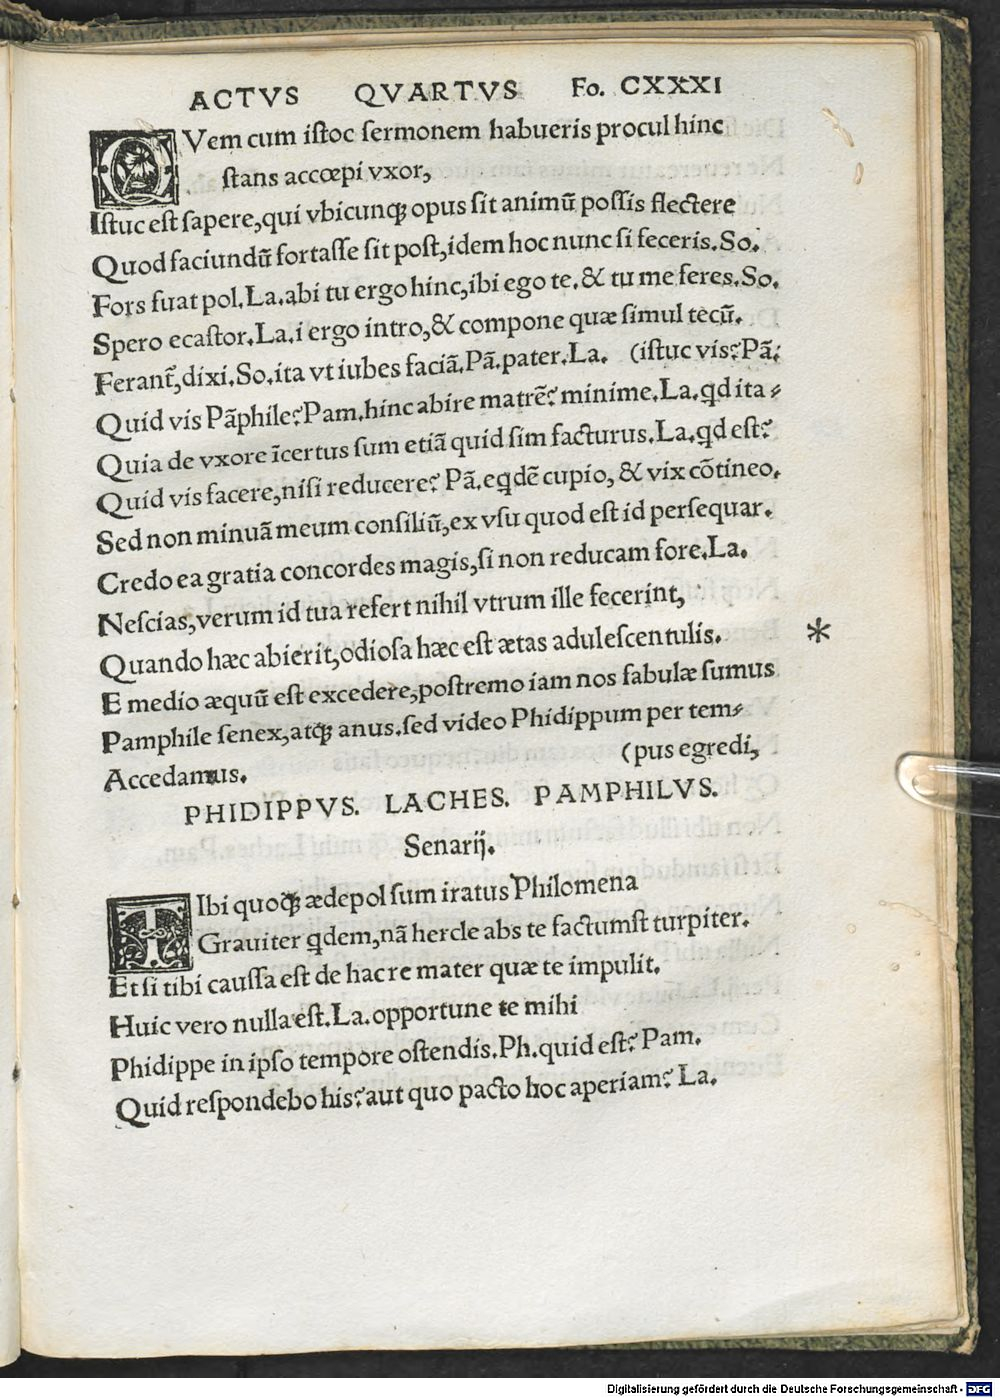 ACTVS QVARTVS Fo. CXXXI
QVem cum istoc sermonem habueris procul hinc
stans accœpi vxor,
Istuc est sapere,qui vbicunqꝫ opus sit animū possis flectere
Quod faciundū fortasse sit post,idem hoc nunc si feceris.So.
Fors fuat pol.La.abi tu ergo hinc,ibi ego te.& tu me feres.So.
Spero ecastor.La.i ergo intro,& compone quæ simul tecū.
Ferant᷑,dixi.So.ita vt iubes faciā.Pā.pater.La. (istuc vis?Pā.
Quid vis Pāphile?Pam.hinc abire matrē? minime.La.qd ita⸗
Quia de vxore īcertus sum etiā quid sim facturus.La.qd est?
Quid vis facere,nisi reducere? Pā.eqdē cupio, & vix cōtineo.
Sed non minuā meum consiliū,ex vsu quod est id persequar.
Credo ea gratia concordes magis,si non reducam fore.La.
Nescias,verum id tua refert nihil vtrum ille fecerint,
Quando hæc abierit,odiosa hæc est ætas adulescentulis.
*
E medio æquū est excedere,postremo iam nos fabulæ sumus
Pamphile senex,atqꝫ anus.sed video Phidippum per tem⸗
(pus egredi,
Accedamus.
PHIDIPPVS. LACHES. PAMPHILVS.
Senarij.
TIbi quoqꝫ ædepol sum iratus Philomena
Graviter qdem,nā hercle abs te factumst turpiter.
Et si tibi caussa est de hac re mater quæ te impulit.
Huic vero nulla est.La.opportune te mihi
Phidippe in ipso tempore ostendis.Ph.quid est? Pam.
Quid respondebo his?aut quo pacto hoc aperiam? La.
Digitalisierung gefördert durch die Deutsche Forschungsgemeinschaft - DFG